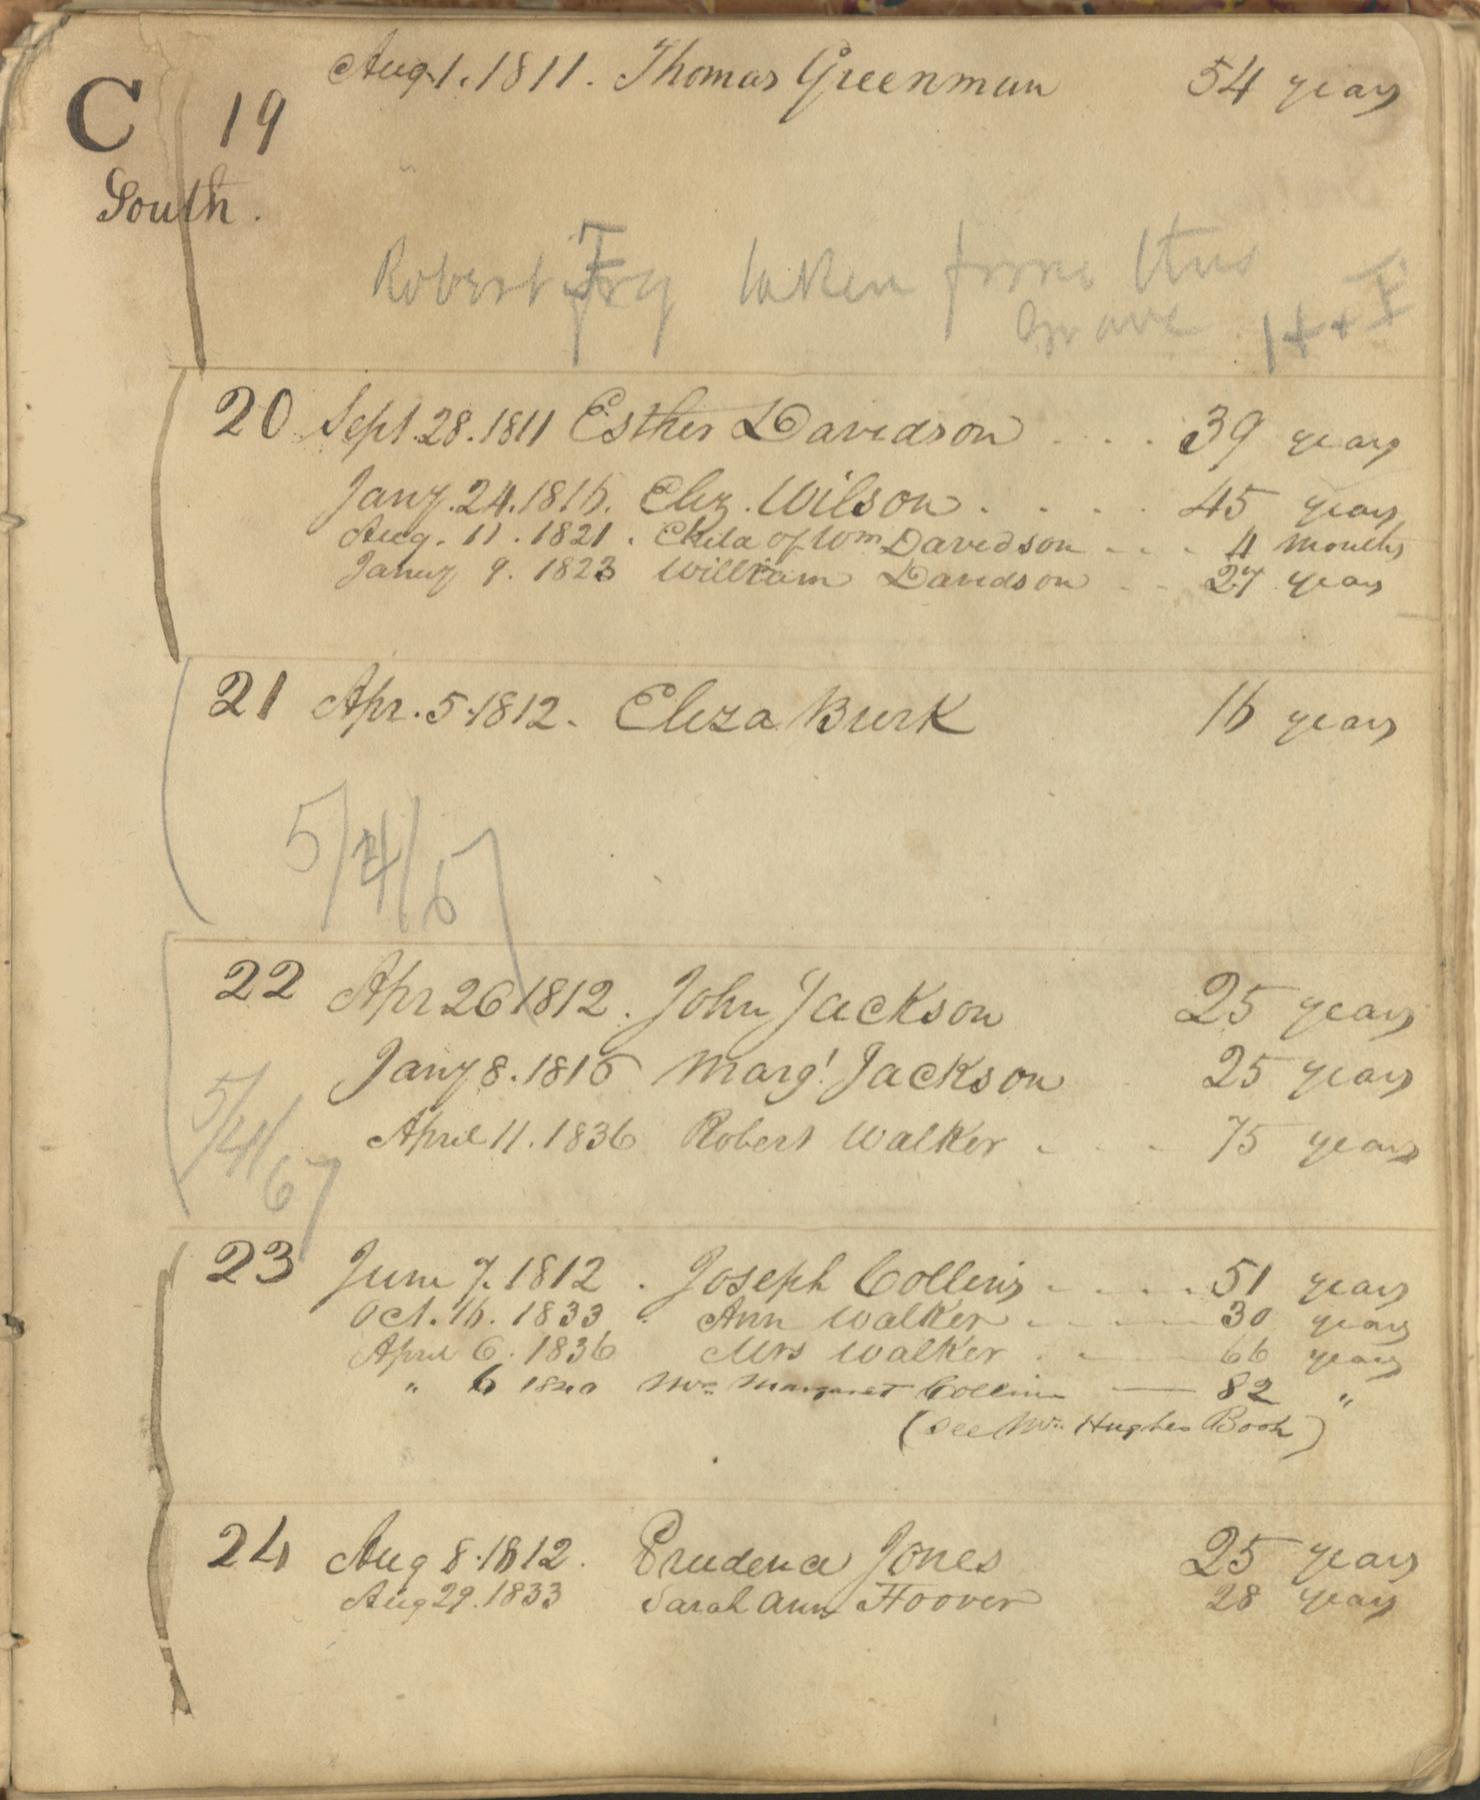 C 19 Aug. 1. 1811. Thomas Greenman 54 years
South.
Robert Fry taken from this
grave
20 Sept. 28. 1811 Esther Davidson . . . 39 years
Jany. 24. 1816. Eliz. Wilson . . . . 45 years
Aug. 11. 1821. Child of Wm Davidson . . . 4 months
Januy 9. 1823 William Davidson . . 27 years
21 Apr. 5. 1812. Eliza Burk 16 years
5/4/67
22 Apr 26 1812. John Jackson 25 years
Jany 8. 1816 Margt. Jackson 25 years
5/4/67
April 11. 1836 Robert Walker . . . 75 years
23 June 7. 1812 . Joseph Collins . . . . 51 years
Oct. 16. 1833 Ann Walker 30 years
April 6. 1836 Mrs Walker 66 years
" 6 1840 Mrs Margaret Collins — 82 "
(See Mr. Hughes Book)
24 Aug 8. 1812. Prudence Jones 25 years
Aug 29. 1833 Sarah Ann Hoover 28 years